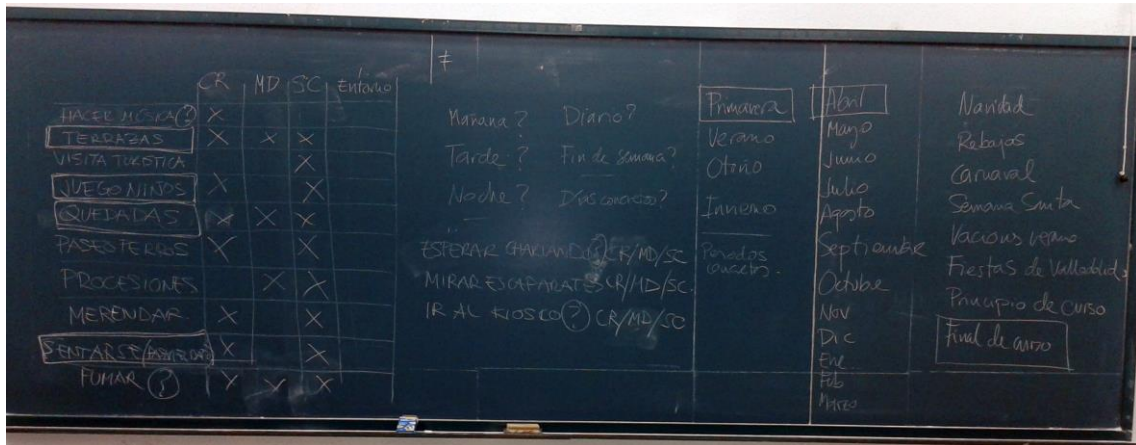 ≠
CR MD SC Entorno
HACER MÚSICA (?) X
TERRAZAS X X X
VISITA TURÍSTICA X
JUEGO NIÑOS X X
QUEDADAS X X X
PASEO PERROS X X
PROCESIONES X X
MERENDAR X X
SENTARSE X X
FUMAR (?) X X X
Mañana? Diario?
Tarde? Fin de semana?
Noche? Días concretos?
ESPERAR CHARLANDO CR/MD/SC
MIRAR ESCAPARATES CR/MD/SC.
IR AL KIOSKO (?) CR/MD/SC
Primavera
Verano
Otoño
Invierno
Periodos
concretos.
Abril
Mayo
Junio
Julio
Agosto
Septiembre
Octubre
Nov
Dic
Ene
Feb
Marzo
Navidad
Rebajas
Carnaval
Semana Santa
Vacions verano
Fiestas de Valladolid
Principio de curso
Final de curso